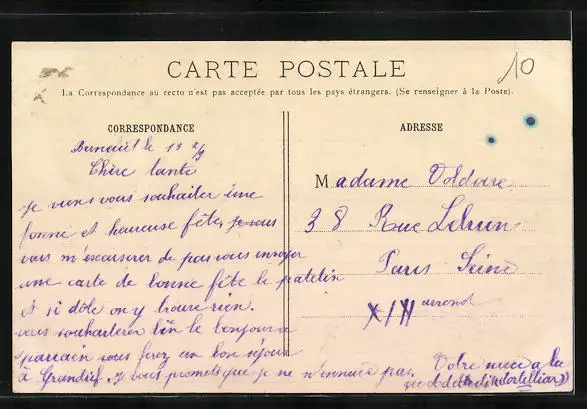 10
CARTE POSTALE
La Correspondance au recto n'est pas acceptée par tous les pays étrangers. (Se renseigner à la Poste).
CORRESPONDANCE
ADRESSE
le 12
Chère tante
Je viens vous souhaiter une
bonne et haureuse fête,
vous m'escurserer de pas vous envoyer
une carte de bonne fête le patelin
et si dôle on y trouve rien.
vous souhaiterer bîn le bonjour a
parrain vous ferez un bon séjour
à Je vous promets que je ne m'ennuie pas.
Votre niece
Madame Voldoire
38 Rue Lebrun
Paris Seine
XIII arrond